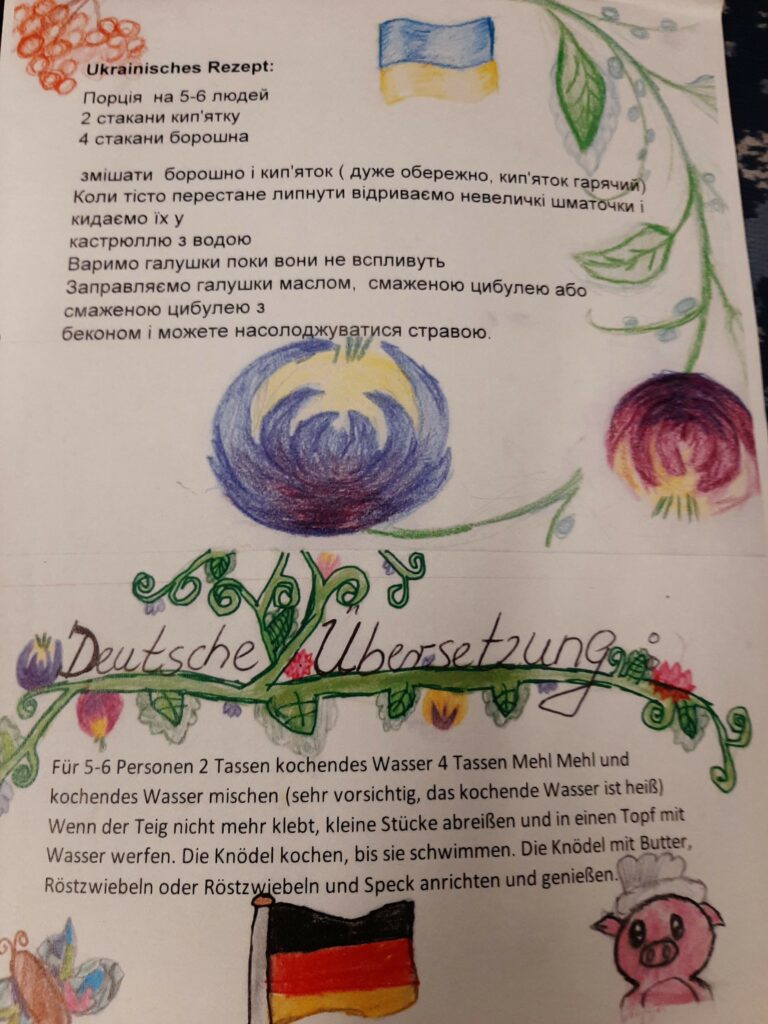 Ukrainisches Rezept:
Порція на 5-6 людей
2 стакани кип'ятку
4 стакани борошна
змішати борошно і кип'яток ( дуже обережно, кип'яток гарячий)
Коли тісто перестане липнути відриваємо невеличкі шматочки і
кидаємо їх у
кастрюллю з водою
Варимо галушки поки вони не вспливуть
Заправляємо галушки маслом, смаженою цибулею або
смаженою цибулею з
беконом і можете насолоджуватися стравою.
Deutsche Übersetzung:
Für 5-6 Personen 2 Tassen kochendes Wasser 4 Tassen Mehl Mehl und
kochendes Wasser mischen (sehr vorsichtig, das kochende Wasser ist heiß)
Wenn der Teig nicht mehr klebt, kleine Stücke abreißen und in einen Topf mit
Wasser werfen. Die Knödel kochen, bis sie schwimmen. Die Knödel mit Butter,
Röstzwiebeln oder Röstzwiebeln und Speck anrichten und genießen.